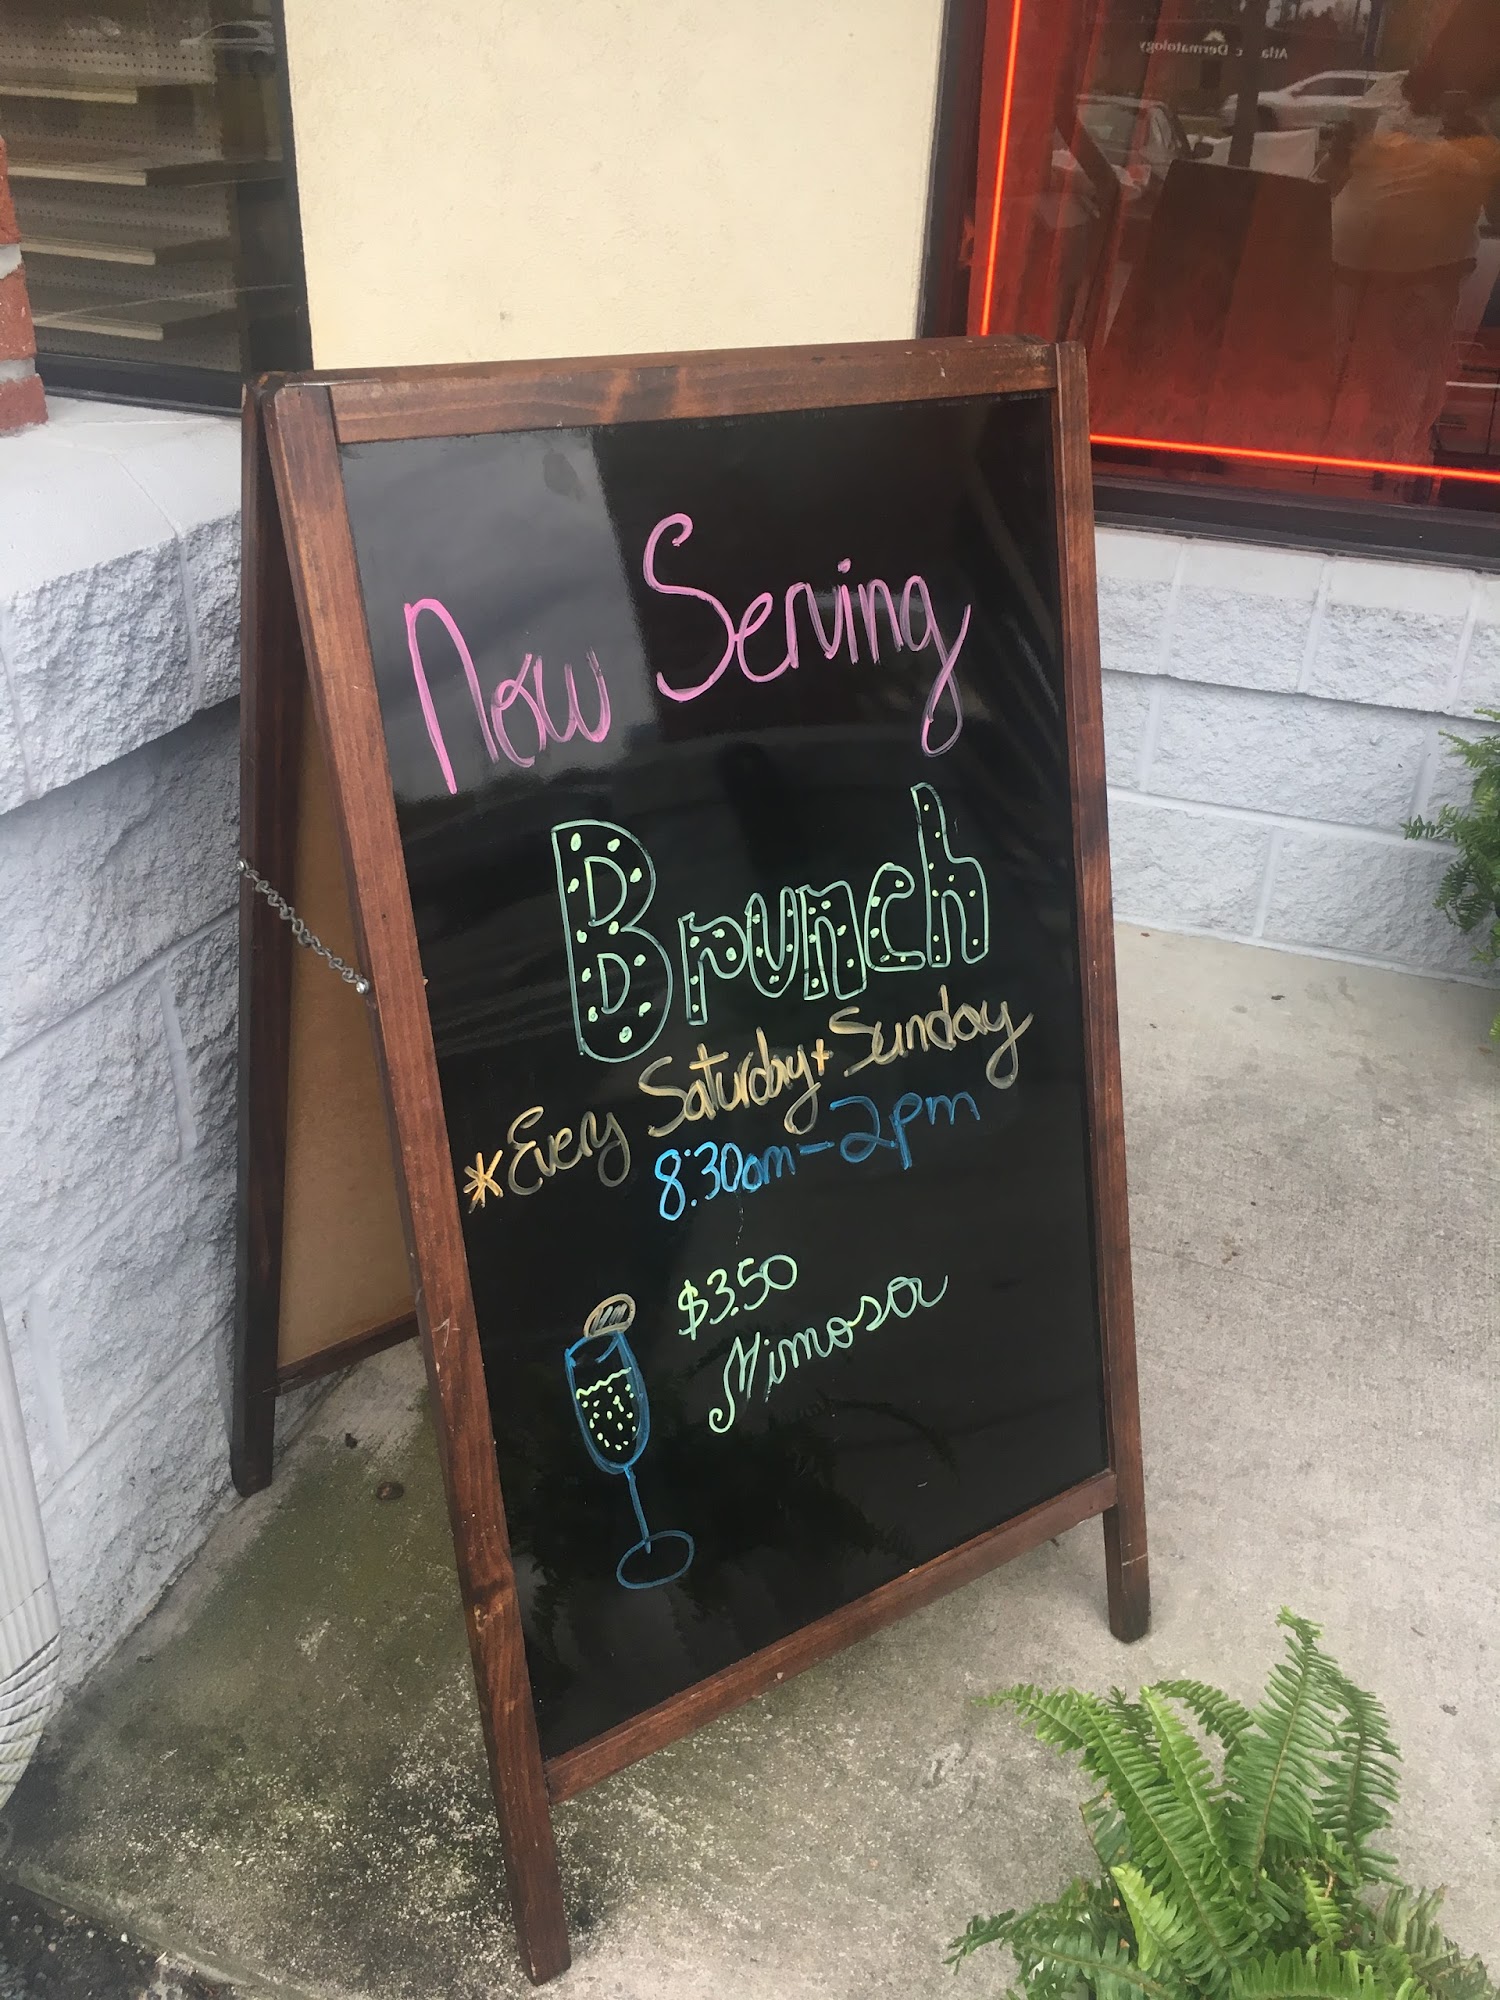 Now Serving
Brunch
*Every Saturday + Sunday
8:30am-2pm
$3.50
Mimosa
Dermatology